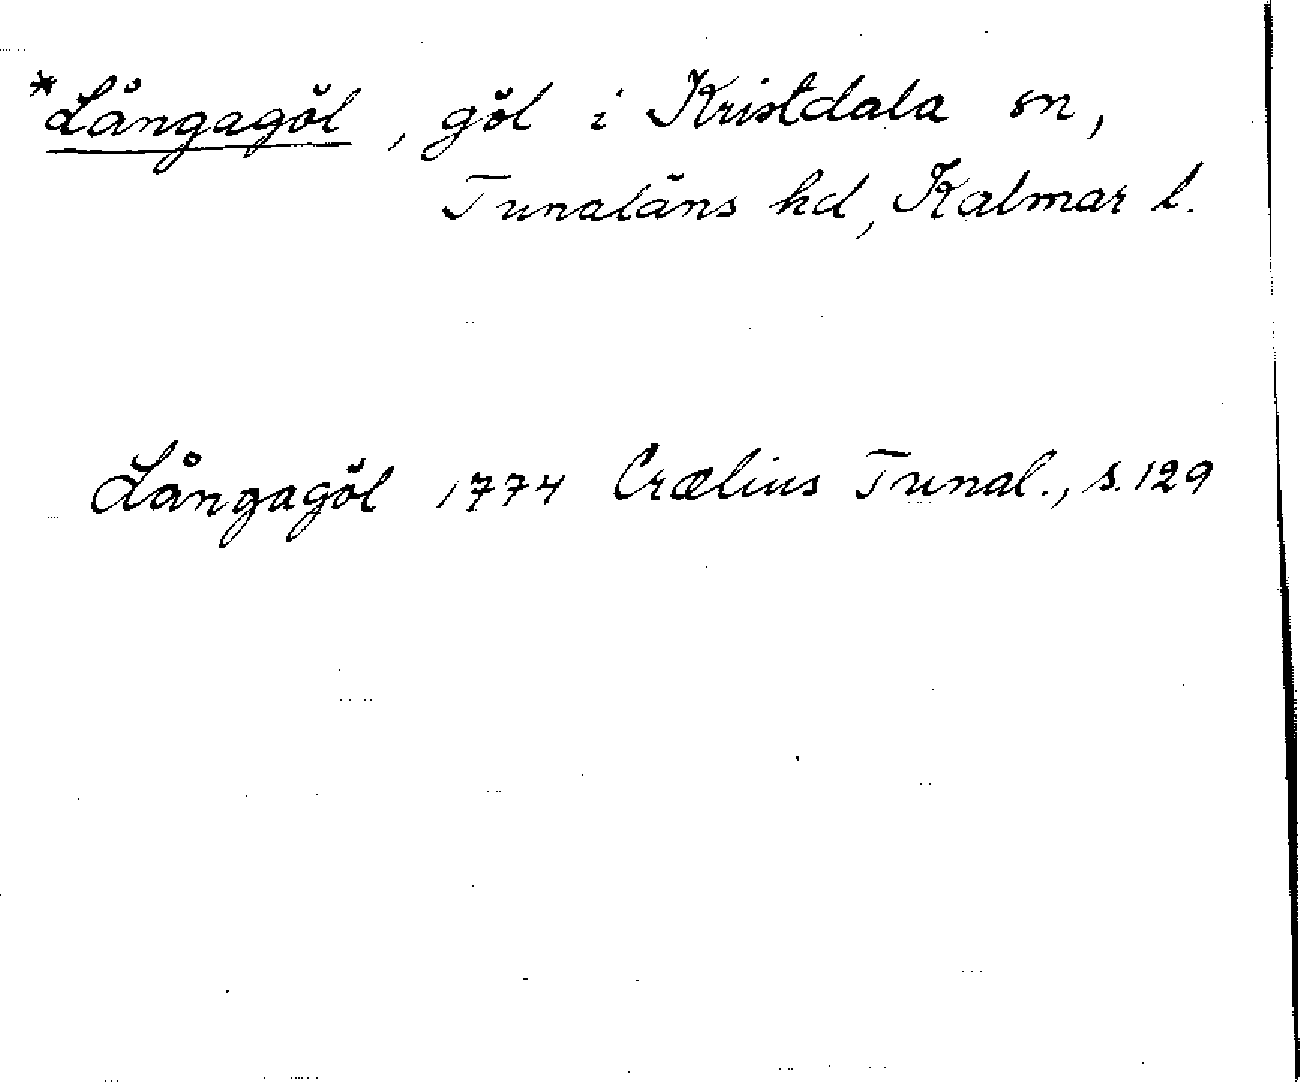 *Långagöl, göl i Kristdala sn,
Tunaläns hd, Kalmar l.
Långagöl 1774 Crælius Tunal., s. 129